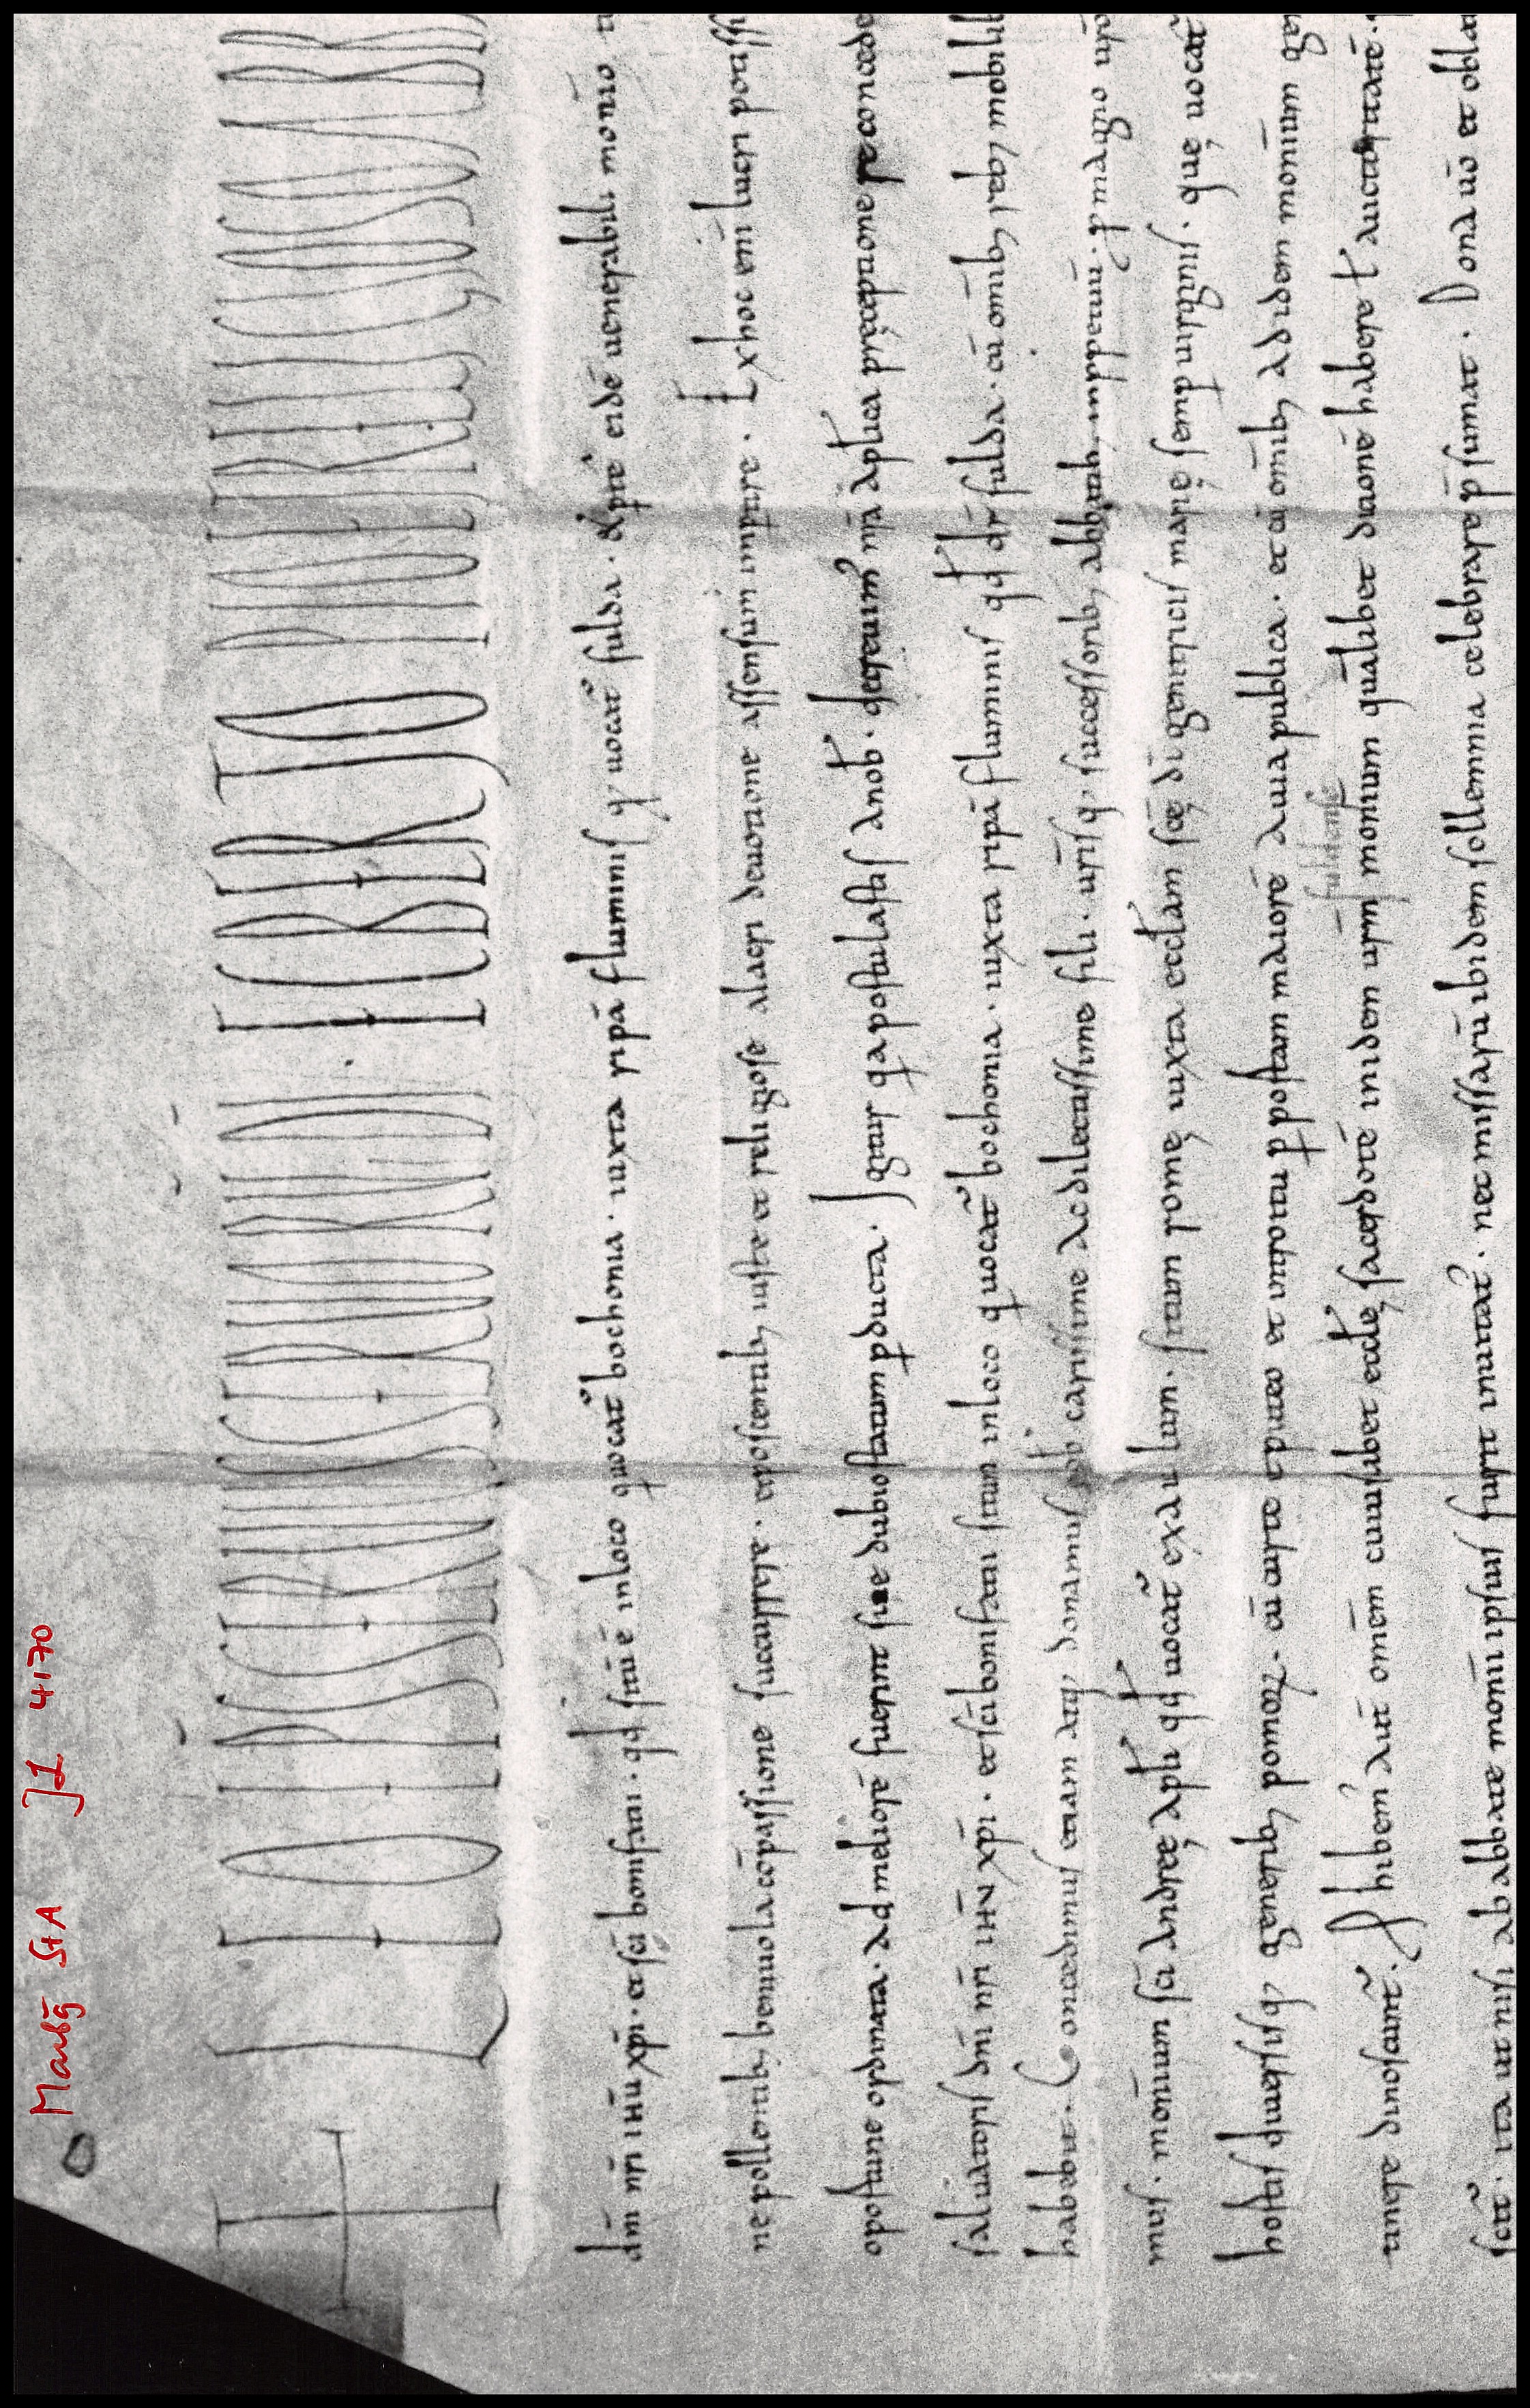 Marbg StA JL 4170
LEO EPISCOPUS SERUUS SERUORUM DI · EGBERTO
dnī nrī ihū xpī · et scī bonifatii · qd sitū ē in loco q uocat᷑ bochonia · iuxta ripā fluminis q uocat᷑ fulda · & p te eidē uenerabili monrio
ne pollentib; beniuola cōpassione succurrere · et poscentib; iuste et religiose alacri deuotione assensum inptire · Ex hoc eni lucri potissi
oportune ordinata · ad meliorē fuerint sine dubio statum pducta · Igitur qa postulastis a nob · quatenus nrā aplica preceptione
saluatoris dnī nrī ihū xpī · et scī bonifatii situm in loco q uocat᷑ bochonia · iuxta ripā fluminis qd dr fulda · cū omib; reb; mobilib
habetur · Concedimus etiam atq; donamus tibi carissime ac dilectissime fili · uris q; successorib; abbatib; inppetuū · p magno uro
mus · monrium scī andreę apli qd uocat᷑ exaiulum · situm romę iuxta ecclam scę dī genitricis marię semp uirginis · quę uocat᷑
hostiis quarisq; generib; pomorz · cū arte et introitu p postam maiorē a uia publica · et cū omib; ad idem monrium
tinere dinoscunt᷑ · Phibem᷑ aut omem cuiuslibet ecclę sacerdotē inidem urm monrium qualibet dicionē habere ł auctoritatē ·
fuldense
scae · ita ut nisi ab abbate monrii ipsius fuerit inuitat᷑ · nec missarū ibidem sollemnia celebrare psumat · Dona uō et obla